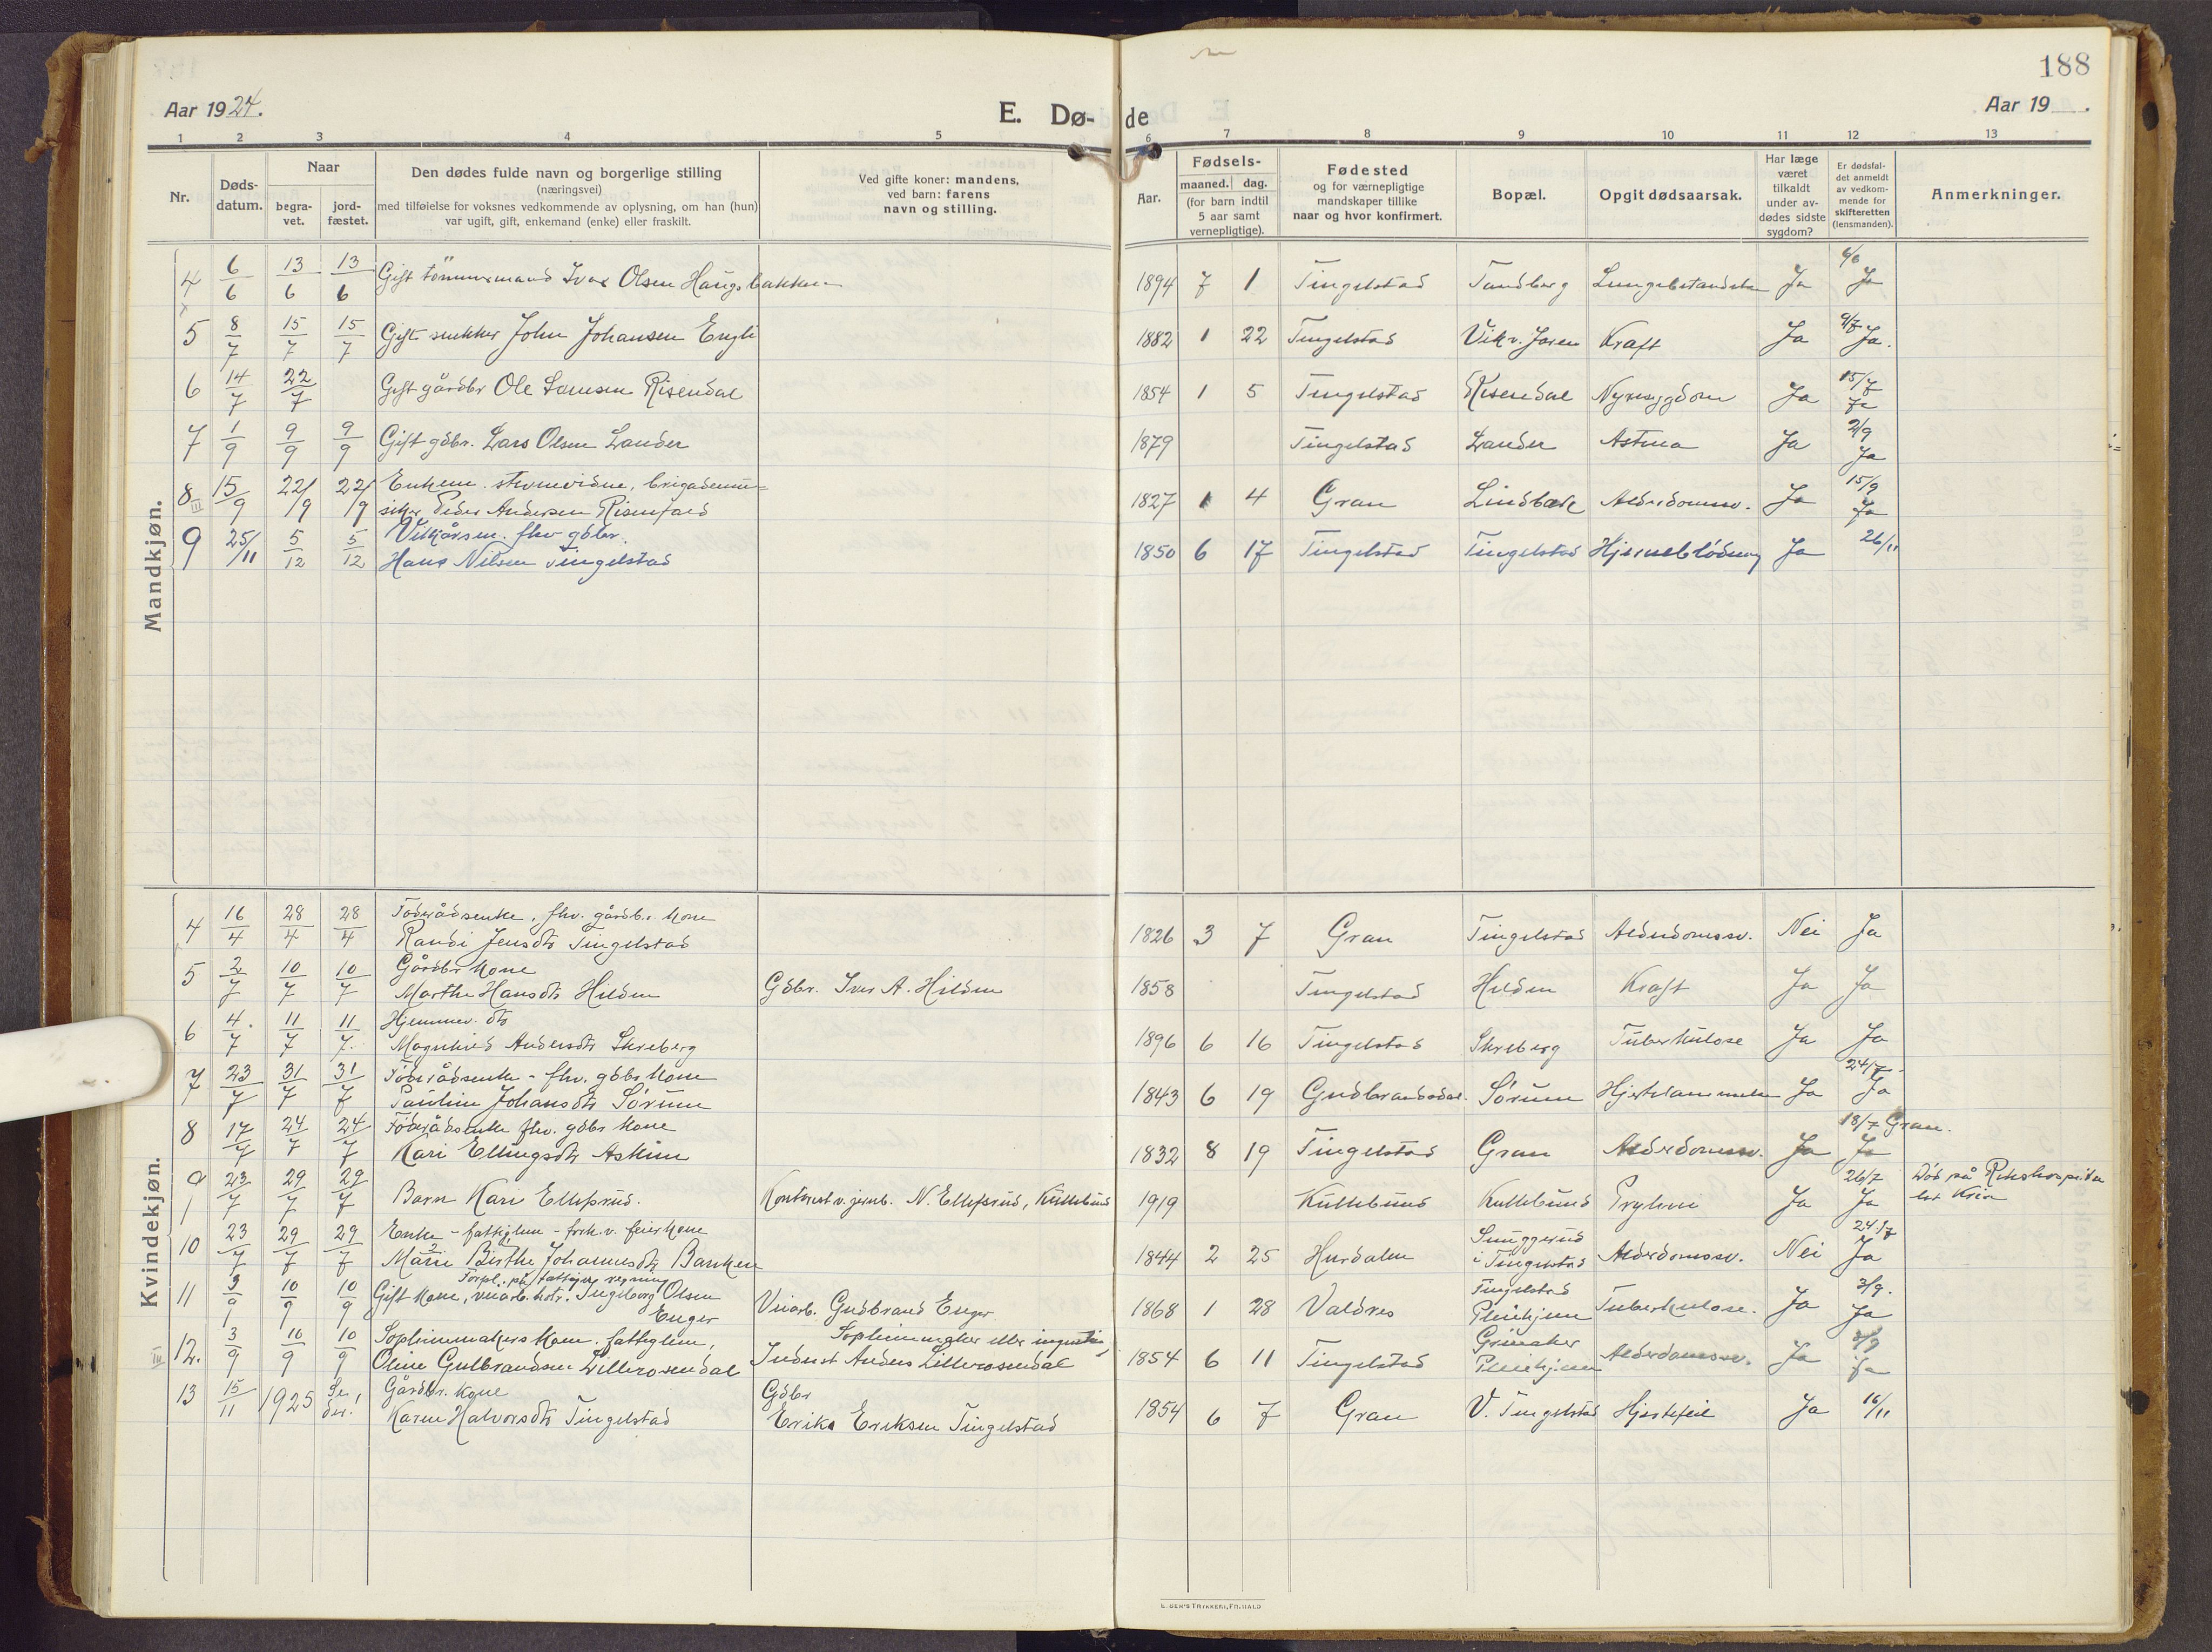 188
Aar 1924.
E. Dø-
de
Aar 19 .
1 2 3 4 5 6 7 8 9 10 11 12 13
Nr.
Døds-
datum.
Naar
begra-
vet.
jord-
fæstet.
Den dødes fulde navn og borgerlige stilling
(næringsvei)
med tilføielse for voksnes vedkommende av oplysning, om han (hun)
var ugift, gift, enkemand (enke) eller fraskilt.
Ved gifte koner: mandens,
ved barn: farens
navn og stilling.
Aar.
Fødsels-
maaned. dag.
(for barn indtil
5 aar samt
vernepligtige).
Fødested
og for værnepligtige
mandskaper tillike
naar og hvor konfirmert.
Bopæl.
Opgit dødsaarsak.
Har læge
været
tilkaldt
under av-
dødes sidste
sygdom?
Er dødsfal-
det anmeldt
av vedkom-
mende for
skifteretten
(lensmanden).
Anmerkninger.
Mandkjøn.
4 6/6 13/6 13/6 Gift tömmermand Ivar Olsen Haugsbakken 1894 7 1 Tingelstad Tandberg Lungebetændelse Ja 6/6 Ja
5 8/7 15/7 15/7 Gift snekker John Johansen Engli 1882 1 22 Tingelstad Vik v. Jaren Kraft Ja 9/7 Ja.
6 14/7 22/7 Gift gårdbr Ole Larsen Risendal 1854 1 5 Tingelstad Risendal Nyresygdom Ja 15/7 Ja
7 1/9 9/9 9/9 Gift gdbr. Lars Olsen Lander 1879 Tingelstad Lander Astma Ja 2/9 Ja
8 15/9 22/9 22/9 Enkem. stevnevidne, brigademu=
siker Peder Andersen Risenfald 1827 1 4 Gran Lindbæk Alderdomssv. Ja 15/9 Ja
9 25/11 5/12 5/12 Vilkårsm. fhv gdbr.
Hans Nilsen Tingelstad 1850 6 17 Tingelstad Tingelstad Hjerneblödning Ja 26/11
Kvindekjøn.
4 16/4 28/4 28/4 Föderådsenke, fhv. gårdb.s kone
Randi Jensdtr Tingelstad 1826 3 7 Gran Tingelstad Alderdomssv. Nei Ja
5 2/7 10/7 10/7 Gårdbr kone
Marthe Hansdtr Hilden Gdbr. Iver A. Hilden 1858 Tingelstad Hilden Kraft Ja Ja
6 4/7 11/7 11/7. Hjemmev. dtr
Magnhild Andersdtr Skreberg 1896 6 16 Tingelstad Skreberg Tuberkulose Ja Ja
7 23/7 31/7 31/7 Föderådsenke - fhv. gdbr kone
Pauline Johansdtr Sörum 1843 6 19 Gudbrandsdal. Sörum Hjertelammelse Ja 24/7 Ja
8 17/7 24/7 24/7 Föderådsenke fhv. gdbr kone
Kari Ellingsdtr Askim 1832 8 19 Tingelstad Gran Alderdomssv. Ja 18/7 Gran. Ja
9 23/7 29/7 29/7 Barn Kari Ellefsrud. Kontorist v. jernb. N. Ellefsrud, Kullebund 1919 Kullebund Kullebund Ja 26/7 Ja Död på Rikshospita
let Kria
10 23/7 29/7 29/7 Enke - fattiglem - forh.v. feier kone
Marie Birthe Johannesdtr Banken 1844 2 25 Hurdalen Snuggerud
i Tingelstad Alderdomssv. Nei 24/7 Ja
11 3/9 10/9 10/9 Forpl. på fattigv. regning
Gift kone, veiarb. hstr. Ingeborg Olsen
Enger Veiarb. Gudbrand Enger 1868 1 28 Valdres Tingelstad
Pleiehjem Tuberkulose. Ja 3/9. Ja
12. 3/9 10/9 10/9 kone. fattiglem,
Oline Gulbrandsen Lillerosendal
Inderst Anders Lillerosendal 1854 6 11 Tingelstad Grinaker
Pleiehjem Alderdomssv. Ja 3/9 Ja
13 15/11 1925 Se der! Gårdbr. kone
Karen Halvorsdtr Tingelstad Gdbr
Erik Eriksen Tingelstad 1854 6 7 Gran V. Tingelstad Hjertefeil Ja 16/11